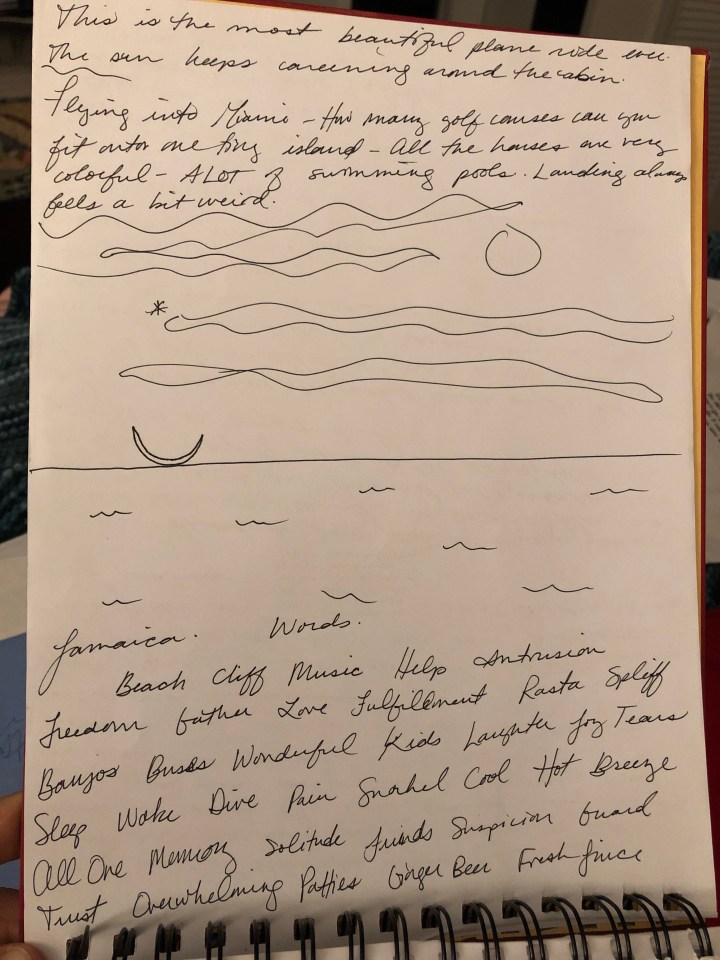 This is the most beautiful plane ride ever.
The sun keeps careening around the cabin.
Flying into Miami - How many golf courses can you
fit onto one tiny island - All the houses are very
colorful - A LOT of swimming pools. Landing always
feels a bit weird.
*
Jamaica. Words.
Beach Cliff Music Help Intrusion
Freedom Father Love Fulfillment Rasta Spliff
Banjos Buses Wonderful Kids Laughter Joy Tears
Sleep Wake Dive Pain Snorkel Cool Hot Breeze
All One Memory Solitude friends Suspicion Guard
Trust Overwhelming Patties Ginger Beer Fresh Juice